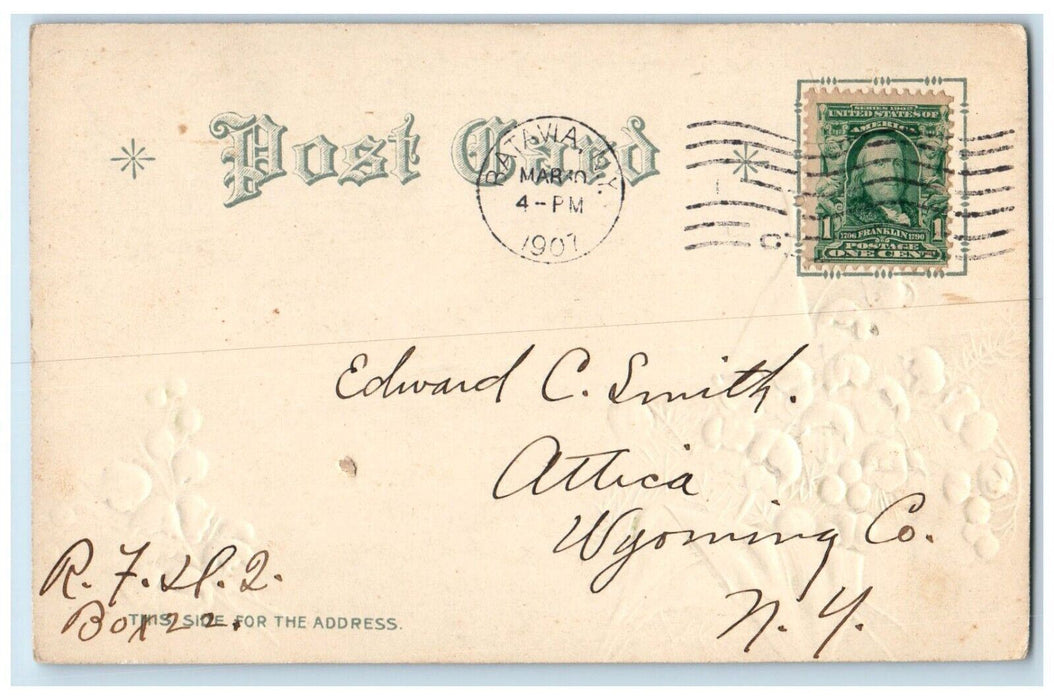 Post Card
BATAVIA, N.Y.
MAR
4-PM
1907
UNITED STATES OF
AMERICA
1 1
1706 FRANKLIN 1790
POSTAGE
ONE CENT
Edward C. Smith.
Attica
Wyoming Co.
N. Y.
R. F. D. 2.
Box 22.
THIS SIDE FOR THE ADDRESS.